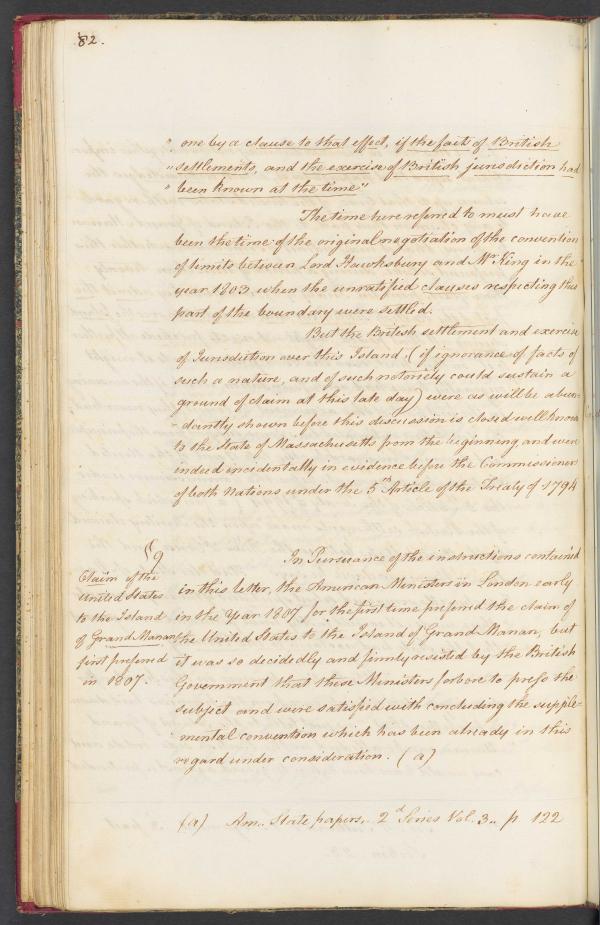 82.
" one by a clause to that effect, if the facts of British
" settlements, and the exercise of British jurisdiction had
" been known at the time"
The time here referred to must have
been the time of the original negotiation of the convention
of limits between Lord Hawksbury and Mr King in the
year 1803 when the unratified clauses respecting this
part of the boundary were settled.
But the British settlement and exercise
of Jurisdiction over this Island (if ignorance of facts of
such a nature, and of such notoriety could sustain a
ground of claim at this late day) were as will be abun-
-dantly shown before this discussion is closed well known
to the State of Massachusetts from the beginning and were
indeed incidentally in evidence before the Commissioners
of both Nations under the 5th Article of the Treaty of 1794
§ 9
Claim of the
United States
to the Island
of Grand Manan
first preferred
in 1807.
In Pursuance of the instructions contained
in this letter, the American Ministers in London early
in the Year 1807 for the first time prefered the claim of
the United States to the Island of Grand Manan, but
it was so decidedly and firmly resisted by the British
Government that these Ministers forbore to press the
subject and were satisfied with concluding the supple-
mental convention which has been already in this
regard under consideration. (a)
(a) Am. State papers, 2d Series Vol. 3.. p 122